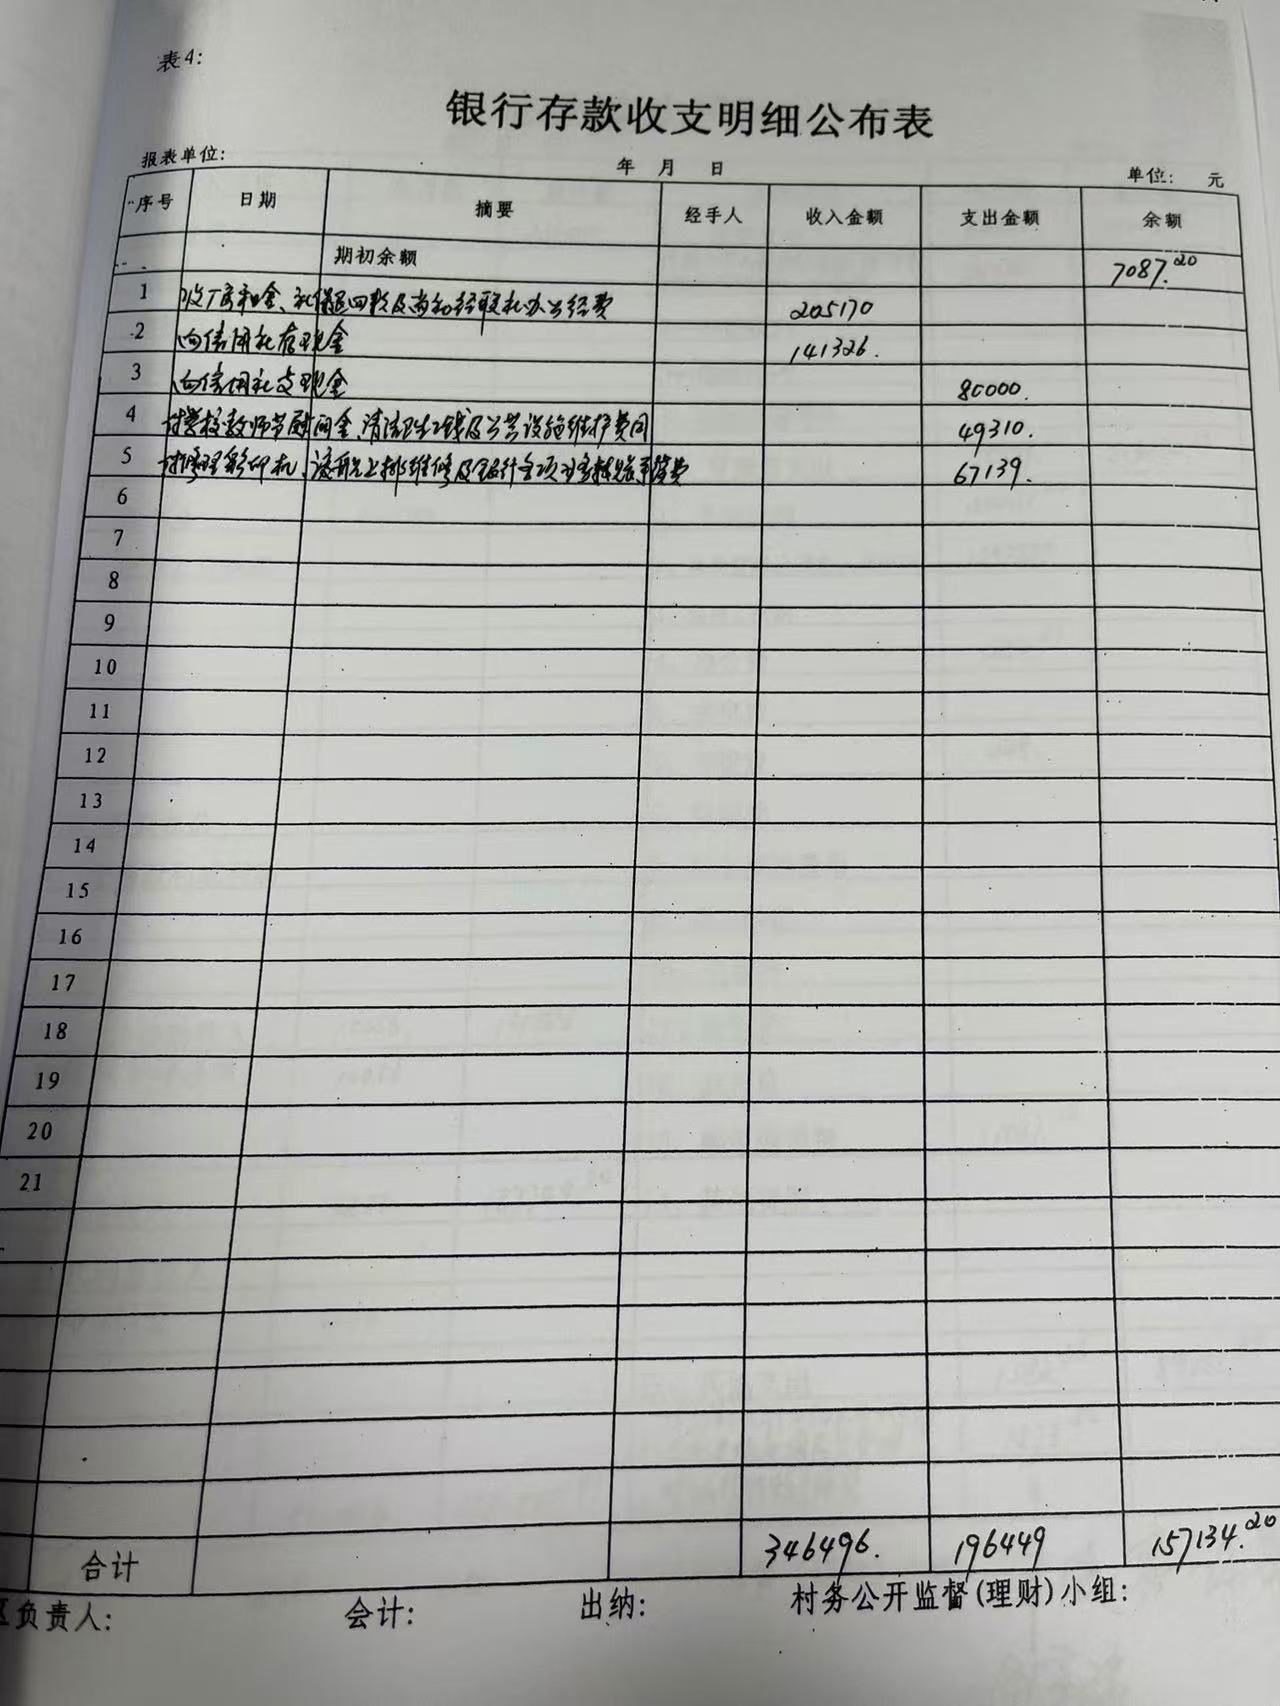 表4:
银行存款收支明细公布表
报表单位: 年 月 日 单位: 元
序号 日期 摘要 经手人 收入金额 支出金额 余额
期初余额 7087.20
1 收厂房租金、社保退回款及 经费 205170
2 向信用社存现金 141326.
3 向信用社支现金 80000.
4 付学校教师节慰问金、清洁卫生工钱及公共设施维护费用 49310.
5 付修理彩印机、 维修及 费 67139.
6
7
8
9
10
11
12
13
14
15
16
17
18
19
20
21
合计 346496. 196449 157134.20
负责人: 会计: 出纳: 村务公开监督(理财)小组: